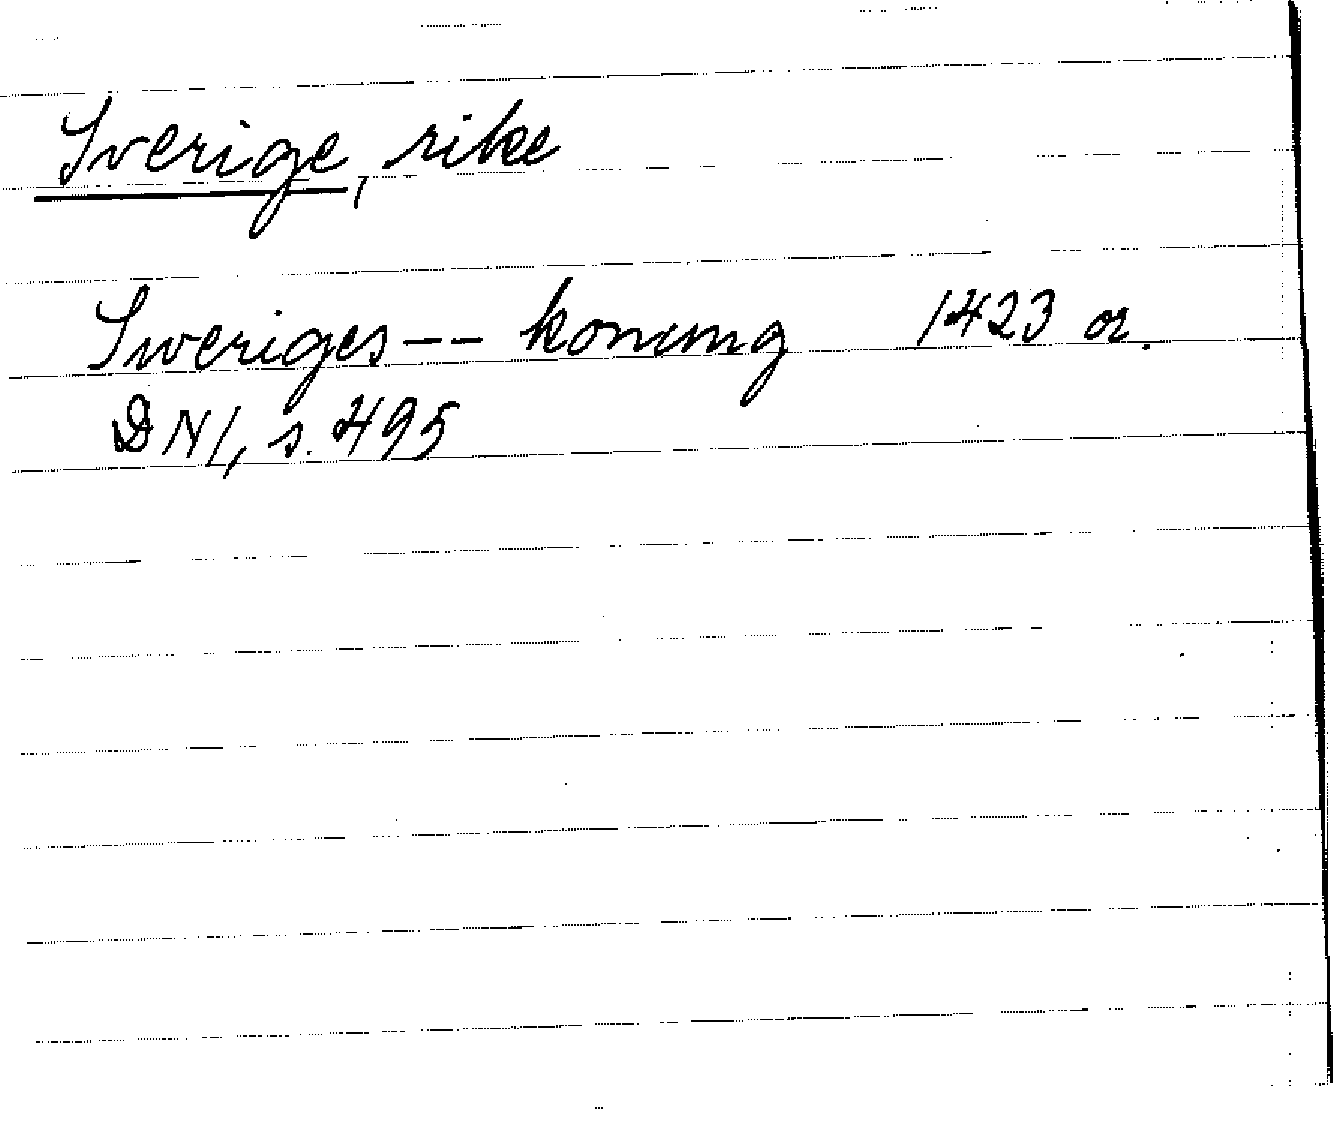 Sverige, rike
Sweriges -- konung 1423 or.
DN I, s. 495